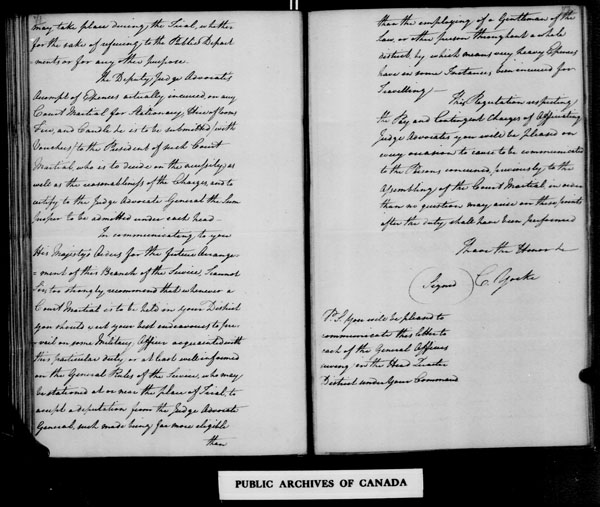 may take place during the Trial, whether
for the sake of referring to the Public Depart
ments or for any other purpose.
The Deputy Judge Advocates
Account of Expences actually incurred, on any
Court Martial for Stationary, Hire of Rooms
Fire, and Candle is to be submitted (with
Vouchers) to the President of such Court
Martial, who is to decide on the necessity as
well as the reasonableness of the Charges, and to
certify to the Judge Advocate General the Sum
proper to be admitted under each head —
In communicating to you
His Majestys Orders for the future Arrange
=ment of this Branch of the Service, I cannot
too strongly recommend that whenever a
Court Martial is to be held in your District
you should exert your best endeavours to pre
vail on some Military Officer acquainted with
this particular duty, or at least well informed
on the General Rules of the Service, who may
be stationed at or near the place of Trial, to
accept a deputation from the Judge Advocate
General, such mode being far more eligible
than
than the employing of a Gentleman of the
Law, or other person throughout a whole
district, by which means very heavy Expences
have in some Instances been incurred for
Travelling —
This Regulation respecting
the Pay and Contingent Charges of Officiating
Judge Advocates you will be pleased on
every occasion to cause to be communicated
to the Persons concerned, previously to the
Assembling of the Court Martial in order
that no question may arise on these points
after the duty shall have been performed
I have the Honor &c
(Signed) C. Yorke
P.S. You will be pleased to
communicate this letter to
each of the General Officers
serving on the Head Quarter
District under Your Command
PUBLIC ARCHIVES OF CANADA